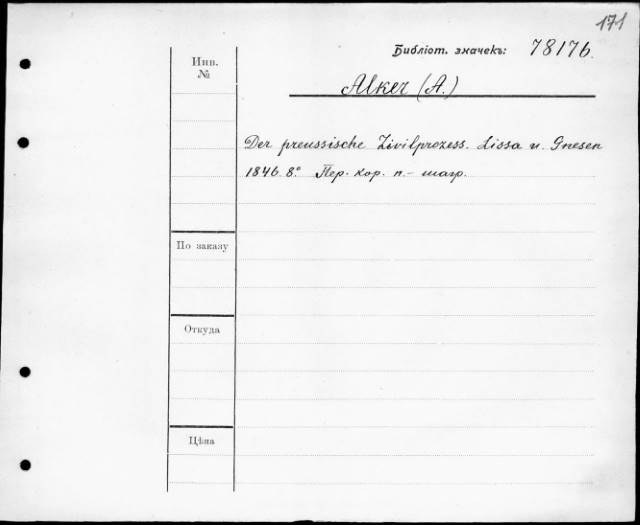 171
Библіот. значекъ: 78176.
Инв.
№
Alker (A.)
Der preussische Zivilprozess. Lissa u. Gnesen
1846. 8º. Пер. кор. п.- шагр.
По заказу
Откуда
Цѣна